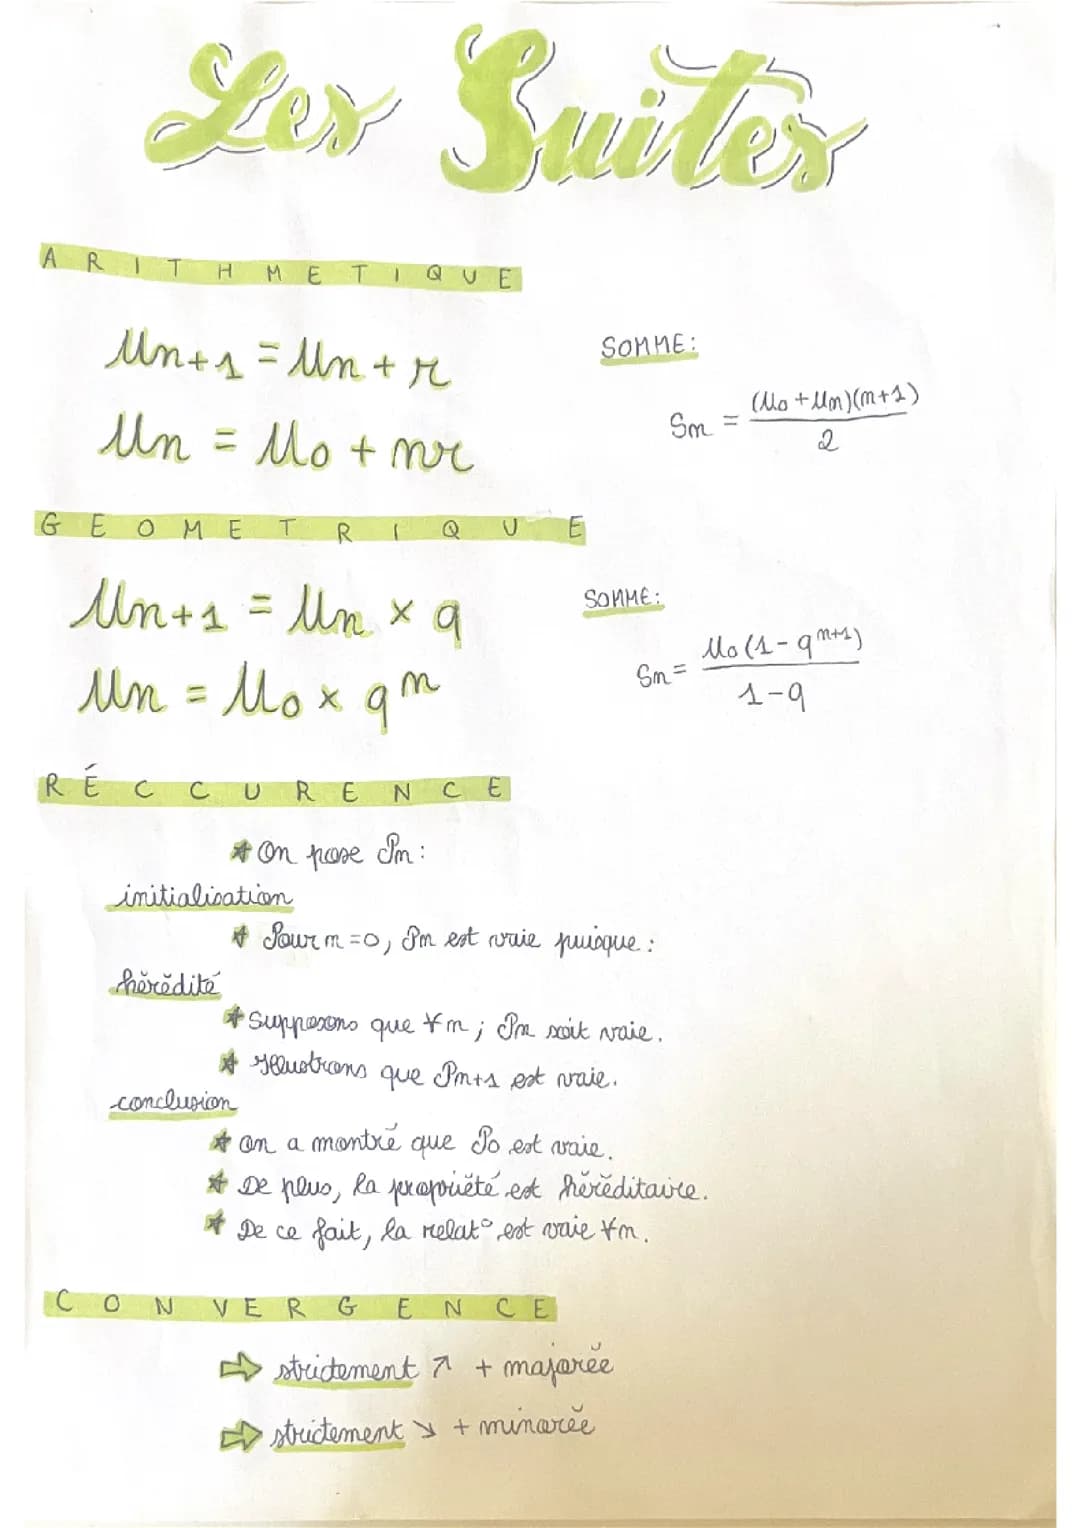 Les Suites
ARITHMETIQUE
Un+1 = Un + r
Un = U0 + nr
SOMME:
Sn = (U0 + Un)(n+1) / 2
GEOMETRIQUE
Un+1 = Un × q
Un = U0 × q^n
SOMME:
Sn = U0 (1 - q^n+1) / 1-q
RÉCCURENCE
On pose Pn :
initialisation
Pour n=0, Pn est vraie puisque :
hérédité
Supposons que ∀n ; Pn soit vraie.
Illustrons que Pn+1 est vraie.
conclusion
On a montré que P0 est vraie.
De plus, la propriété est héréditaire.
De ce fait, la relat° est vraie ∀n.
CONVERGENCE
⇨ strictement ↗ + majorée
⇨ strictement ↘ + minorée